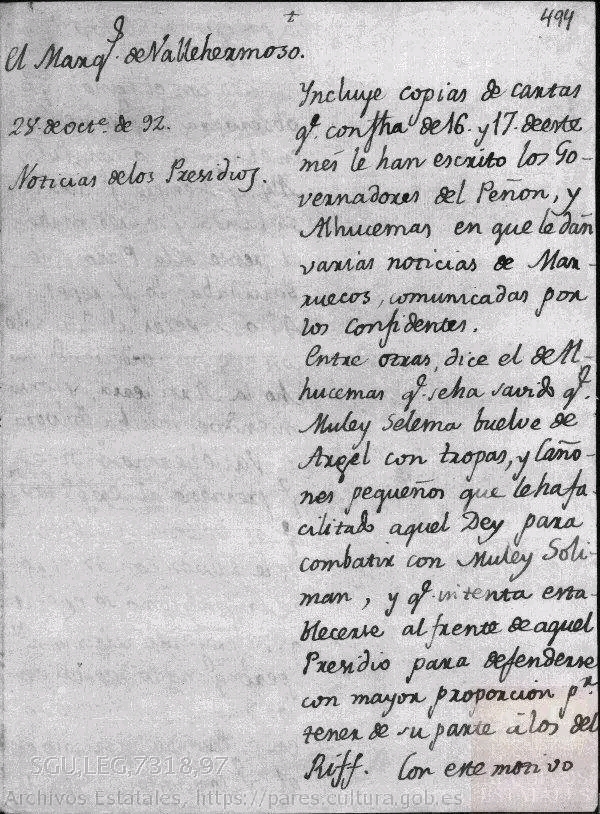 494
El Marq.^s de Vallehermoso.
25. de oct.^e de 92.
Noticias de los Presidios.
Yncluye copias de cartas
q.^e con fha de 16. y 17. de este
mes le han escrito los Go-
vernadores del Peñon, y
Alhucemas en que le dàn
varias noticias de Mar-
ruecos, comunicadas por
los confidentes.
Entre otras, dice el de Al-
hucemas q.^e se ha savido q.^e
Muley Selema buelve de
Argel con tropas, y Caño-
nes pequeños que le ha fa-
cilitado aquel Dey para
combatir con Muley Soli-
man, y q.^e intenta esta-
blecerse al frente de aquel
Presidio para defenderse
con mayor proporcion p.^r
tener de su parte à los del
Riff. Con este motivo
SGU,LEG,7318,97
Archivos Estatales, https://pares.cultura.gob.es